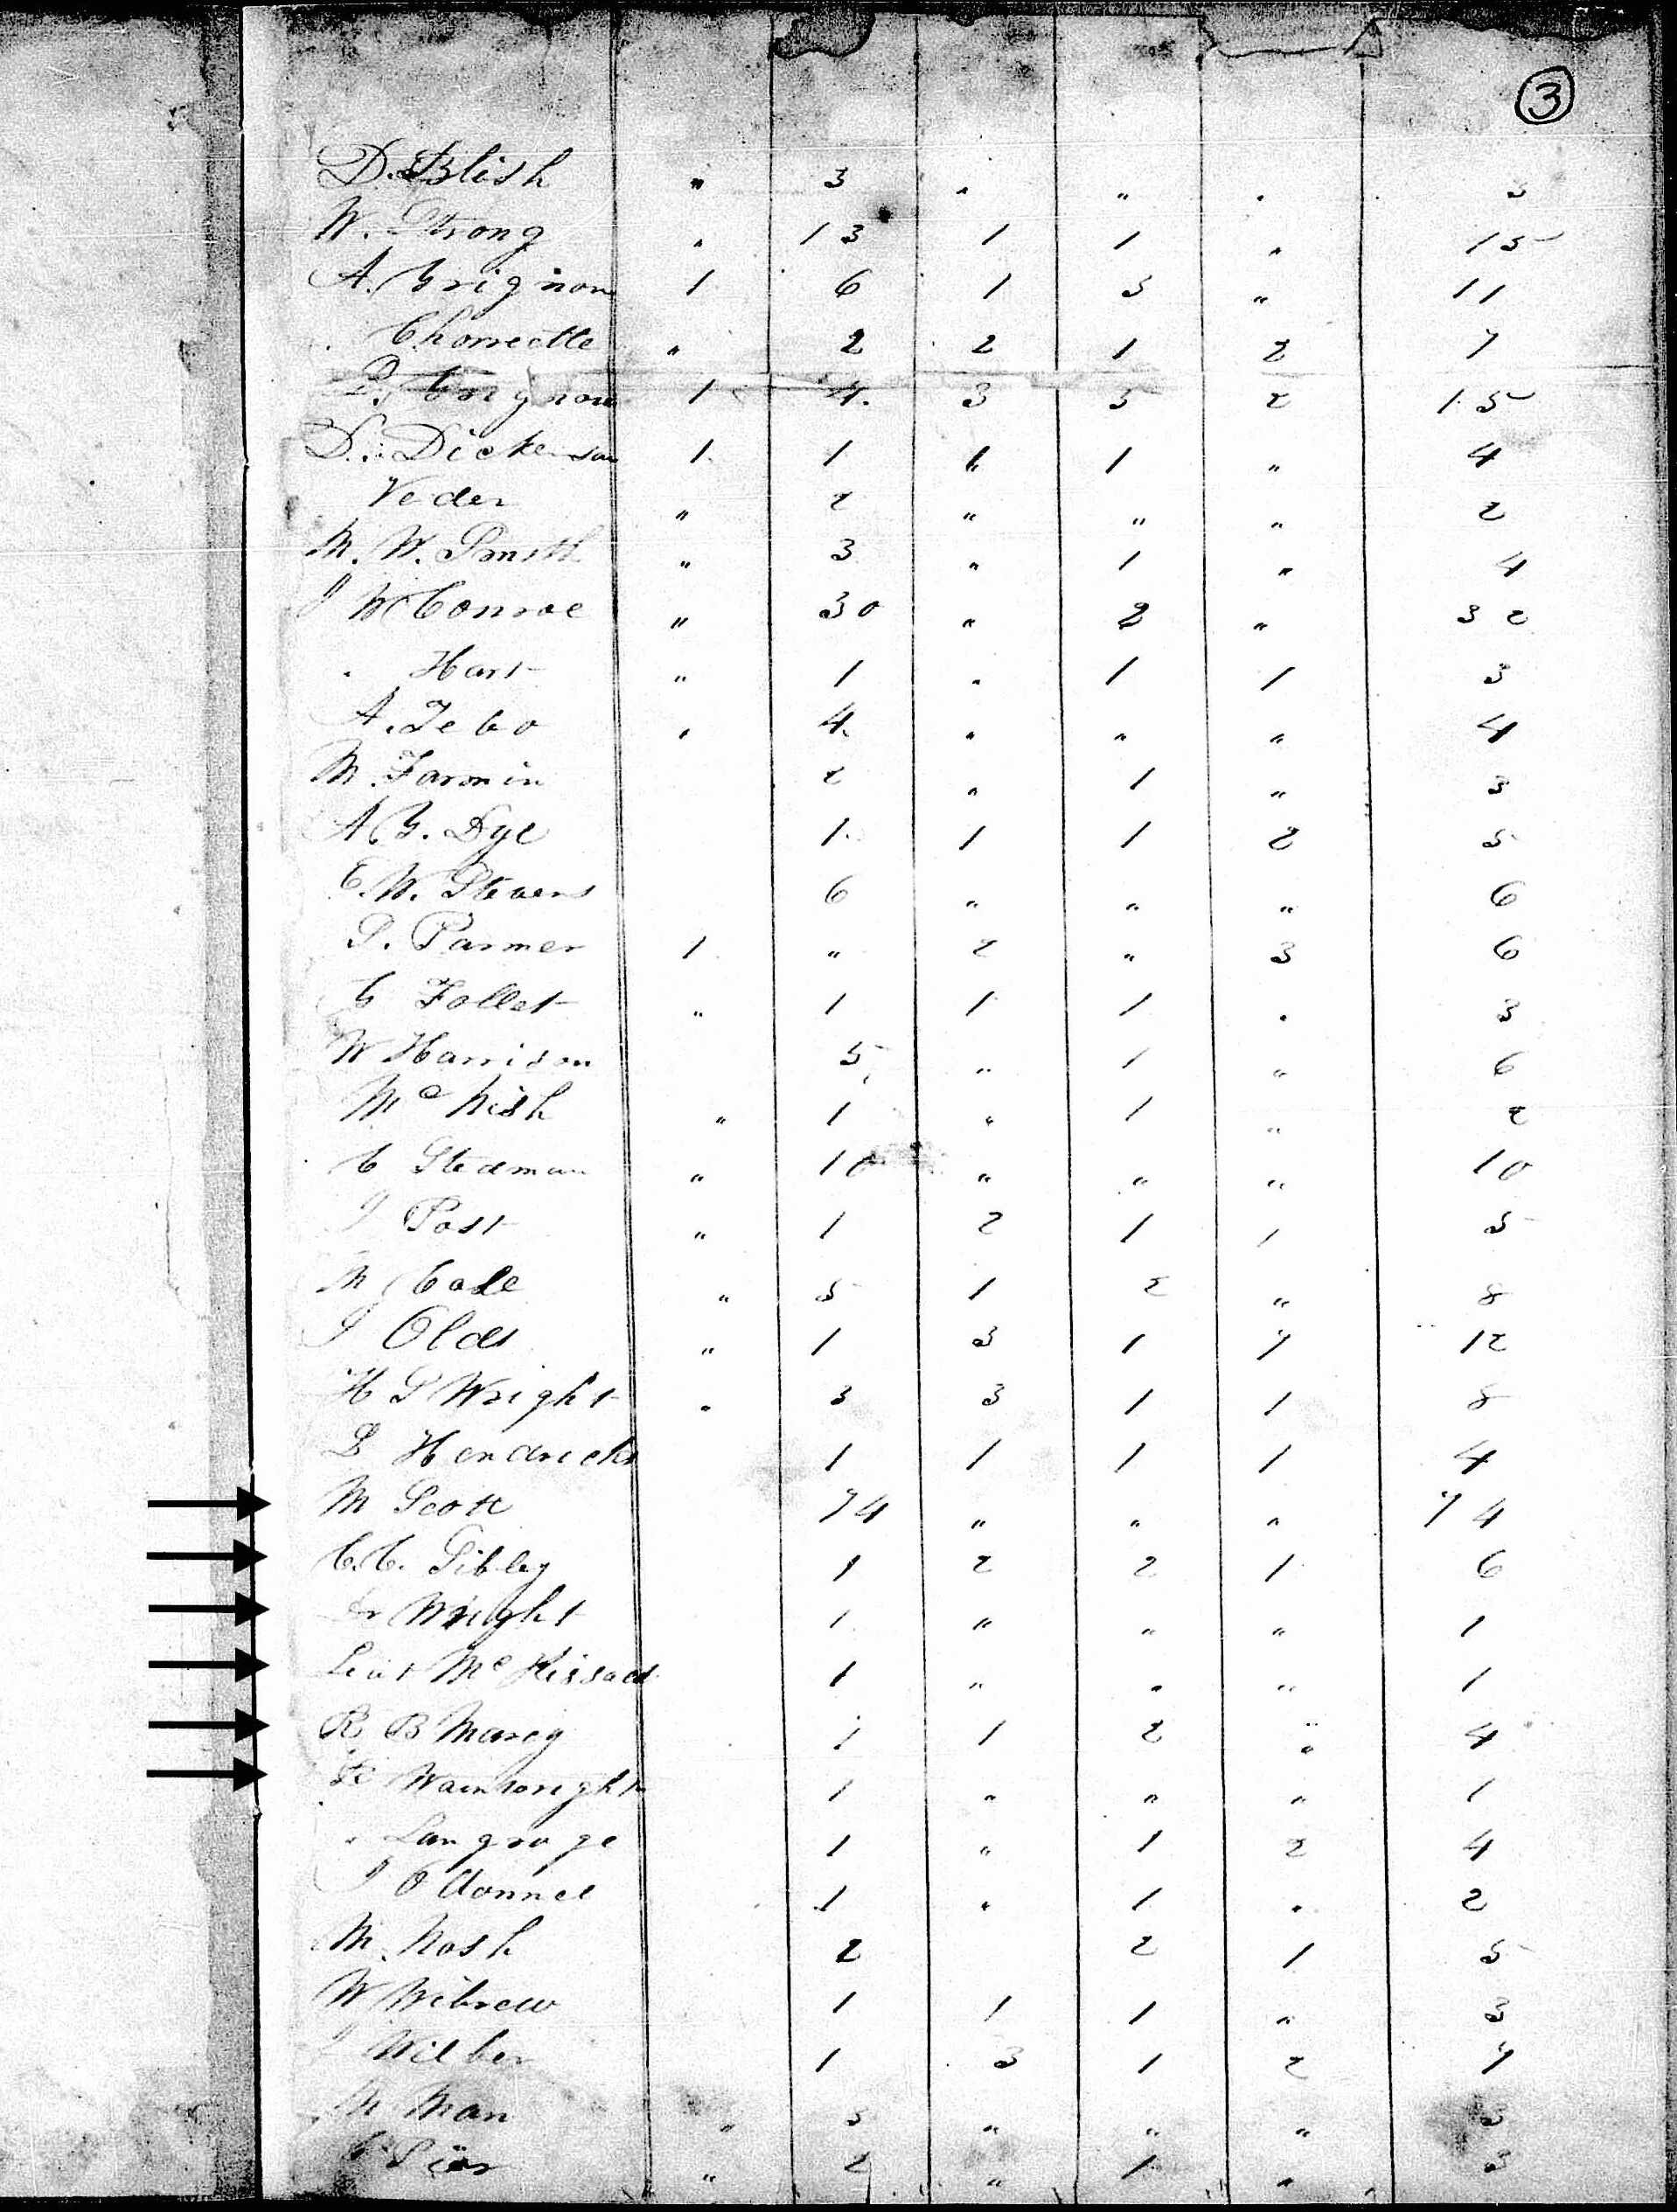 3
D. Blish " 3 " " " 3
W. Strong " 13 1 1 " 15
A. Grignon 1 6 1 3 " 11
Chorrette " 2 2 1 2 7
P. Grignon 1 4 3 5 2 15
D. Dickenson 1 1 1 1 " 4
Veder " 2 " " " 2
M. W. Smith " 3 " 1 " 4
J W Conroe " 30 " 2 " 32
Hart " 1 " 1 1 3
A. Tebo " 4 " " " 4
M. Farmin 2 " 1 " 3
A G. Dye 1 1 1 2 5
C. W. Stevens 6 " " " 6
S. Parmer 1 " 2 " 3 6
G Follet " 1 1 1 " 3
W Harrison 5 " 1 " 6
Mc Nish " 1 " 1 " 2
C Stedman " 10 " " " 10
J Post " 1 2 1 1 5
M Cole " 5 1 2 " 8
J Olds " 1 3 1 7 12
H S Wright " 3 3 1 1 8
B Hendricks 1 1 1 1 4
M Scott 74 " " " 74
C. C. Sibley 1 2 2 1 6
Dr Wright 1 " " " 1
Liut Mc Kissack 1 " " " 1
R B Marcy 1 1 2 " 4
Wainwright 1 " " " 1
Langrage 1 " 1 2 4
J O Donnel 1 " 1 " 2
M. Nash 2 2 1 5
W Wibrew 1 1 1 " 3
J Wilber 1 3 1 2 7
M Man " 3 " " " 3
C Pier " 2 " 1 " 3